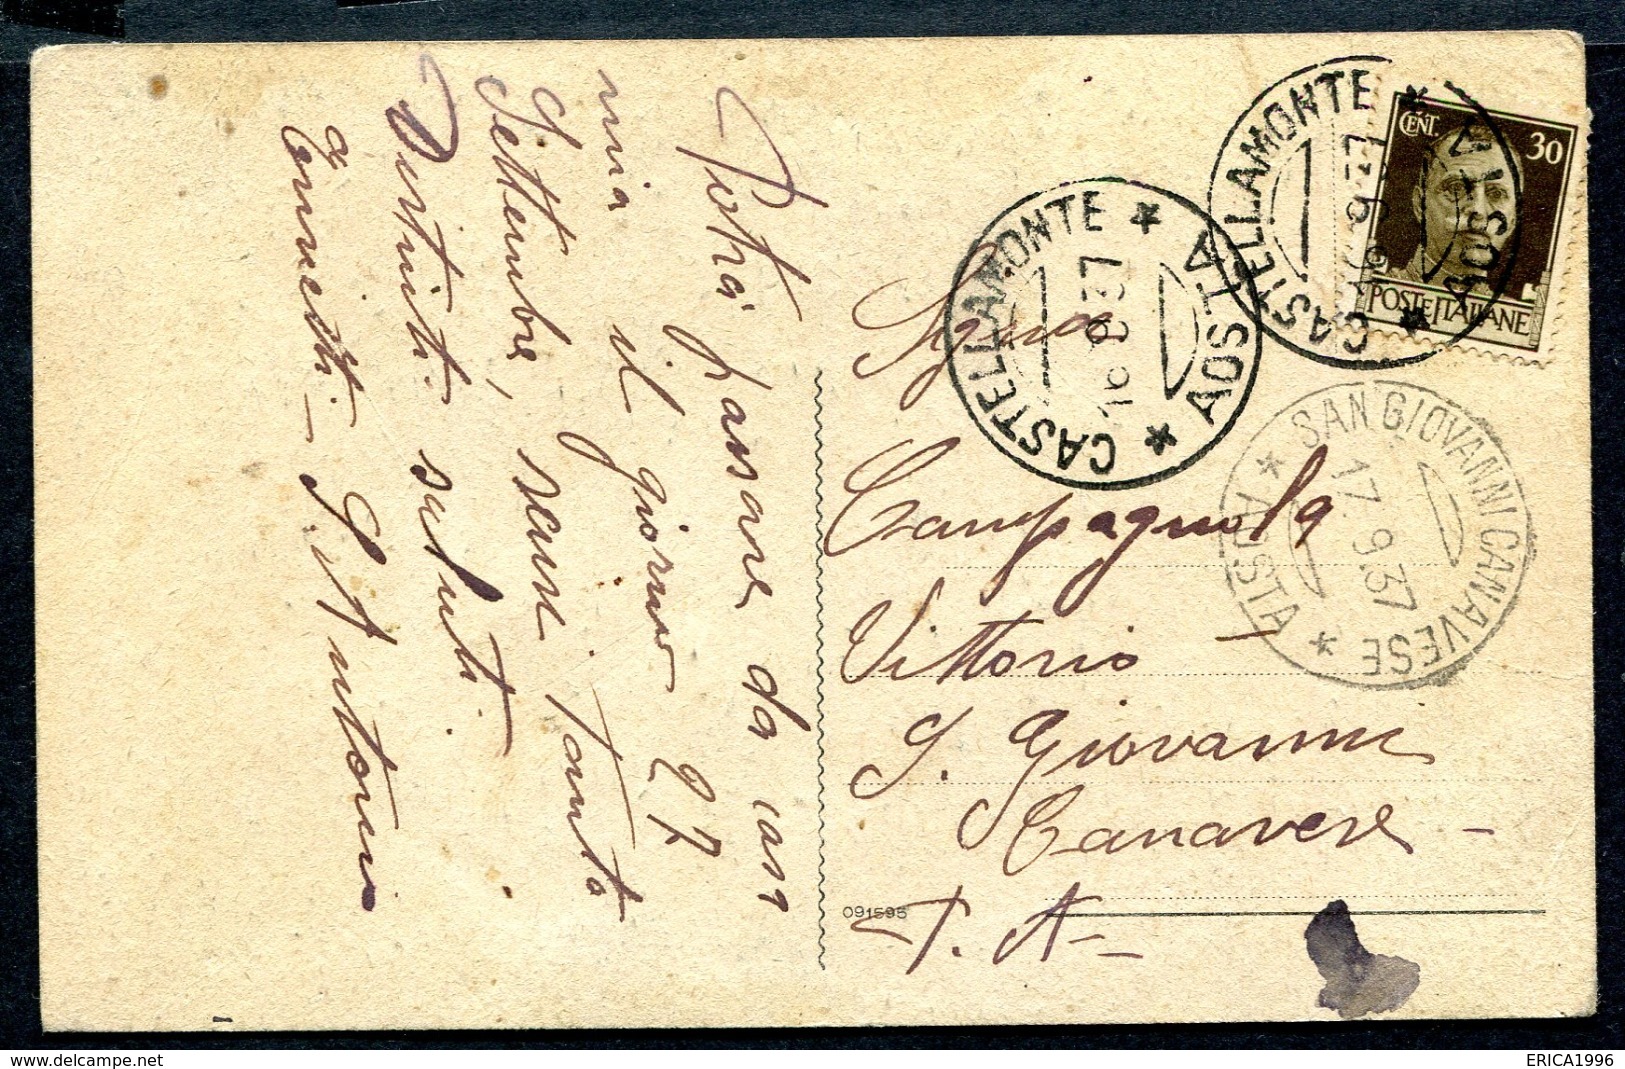 Potrà passare da casa
mia il giorno 27
Settembre, scuse. Tanto
Distinti saluti
a tutti
CENT. 30
POSTE ITALIANE
CASTELLAMONTE * AOSTA *
16.9.37
CASTELLAMONTE * AOSTA *
16.9.37
SAN GIOVANNI CANAVESE * AOSTA *
17.9.37
Campagnola
Vittorio
S. Giovanni
Canavese -
P. A-
091595
ERICA1996